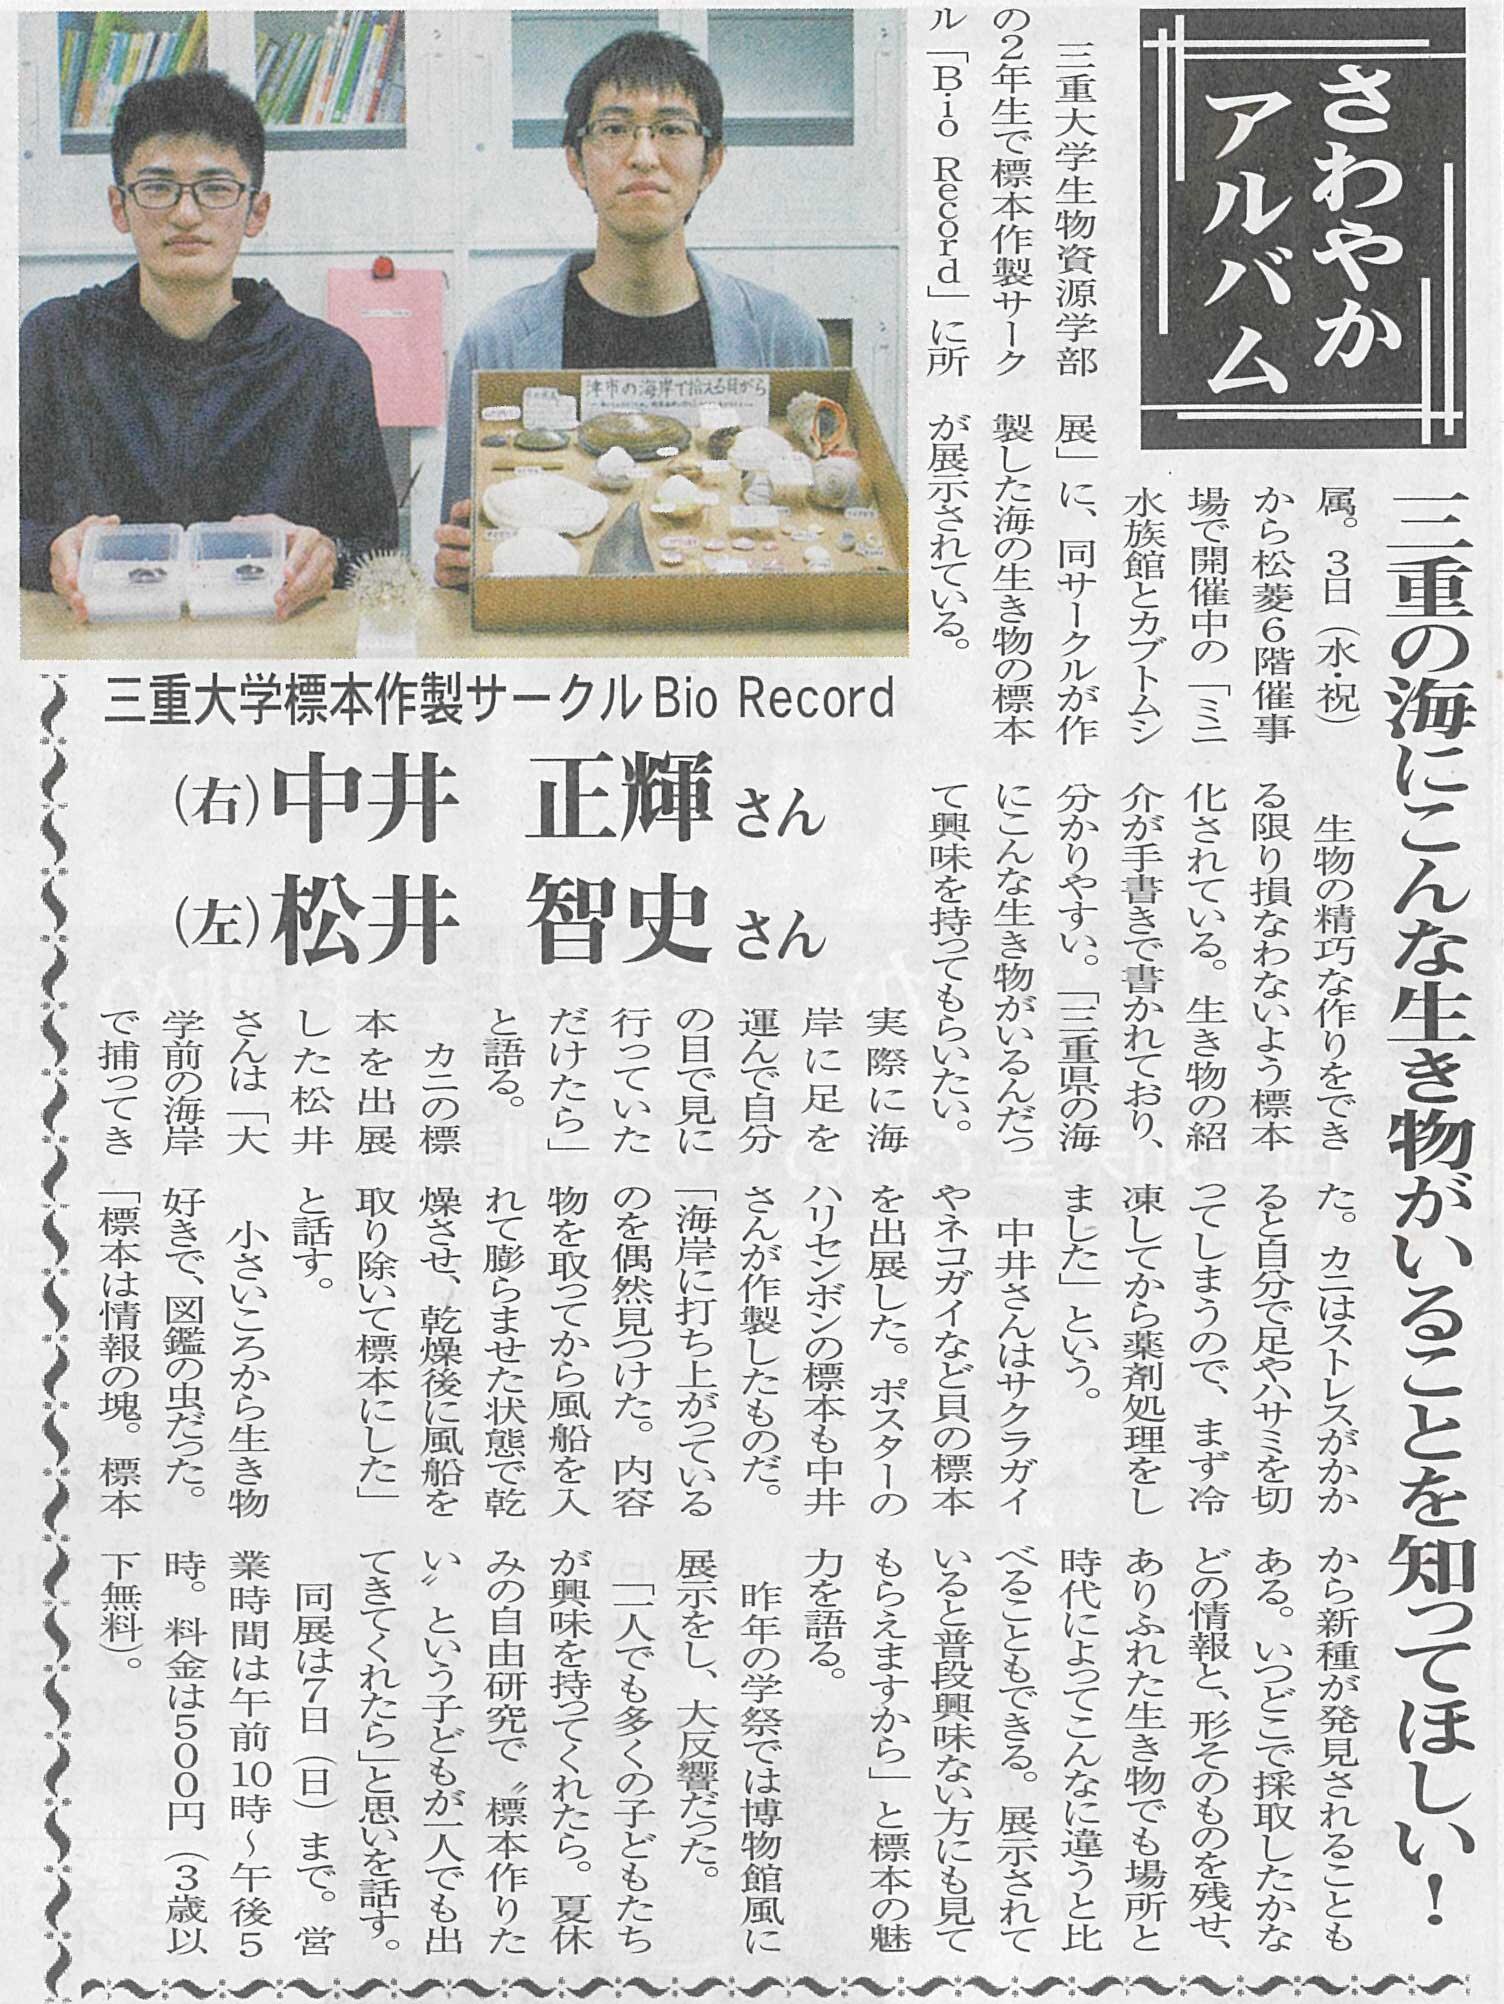 さわやか
アルバム
三重の海にこんな生き物がいることを知ってほしい!
三重大学生物資源学部
の2年生で標本作製サーク
ル「Bio Record」に所
属。3日(水・祝)
から松菱6階催事
場で開催中の「ミニ
水族館とカブトムシ
展」に、同サークルが作
製した海の生き物の標本
が展示されている。
生物の精巧な作りをでき
る限り損なわないよう標本
化されている。生き物の紹
介が手書きで書かれており、
分かりやすい。「三重県の海
にこんな生き物がいるんだっ
て興味を持ってもらいたい。
実際に海
岸に足を
運んで自分
の目で見に
行っていた
だけたら」
と語る。
カニの標
本を出展
した松井
さんは「大
学前の海岸
で捕ってき
た。カニはストレスがかか
ると自分で足やハサミを切
ってしまうので、まず冷
凍してから薬剤処理をし
ました」という。
中井さんはサクラガイ
やネコガイなど貝の標本
を出展した。ポスターの
ハリセンボンの標本も中井
さんが作製したものだ。
「海岸に打ち上がっている
のを偶然見つけた。内容
物を取ってから風船を入
れて膨らませた状態で乾
燥させ、乾燥後に風船を
取り除いて標本にした」
と話す。
小さいころから生き物
好きで、図鑑の虫だった。
「標本は情報の塊。標本
から新種が発見されることも
ある。いつどこで採取したかな
どの情報と、形そのものを残せ、
ありふれた生き物でも場所と
時代によってこんなに違うと比
べることもできる。展示されて
いると普段興味ない方にも見て
もらえますから」と標本の魅
力を語る。
昨年の学祭では博物館風に
展示をし、大反響だった。
「一人でも多くの子どもたち
が興味を持ってくれたら。夏休
みの自由研究で〝標本作りた
い〟という子どもが一人でも出
てきてくれたら」と思いを話す。
同展は7日(日)まで。営
業時間は午前10時〜午後5
時。料金は500円(3歳以
下無料)。
津市の海岸で拾える貝がら
三重大学標本作製サークルBio Record
(右)中井 正輝さん
(左)松井 智史さん